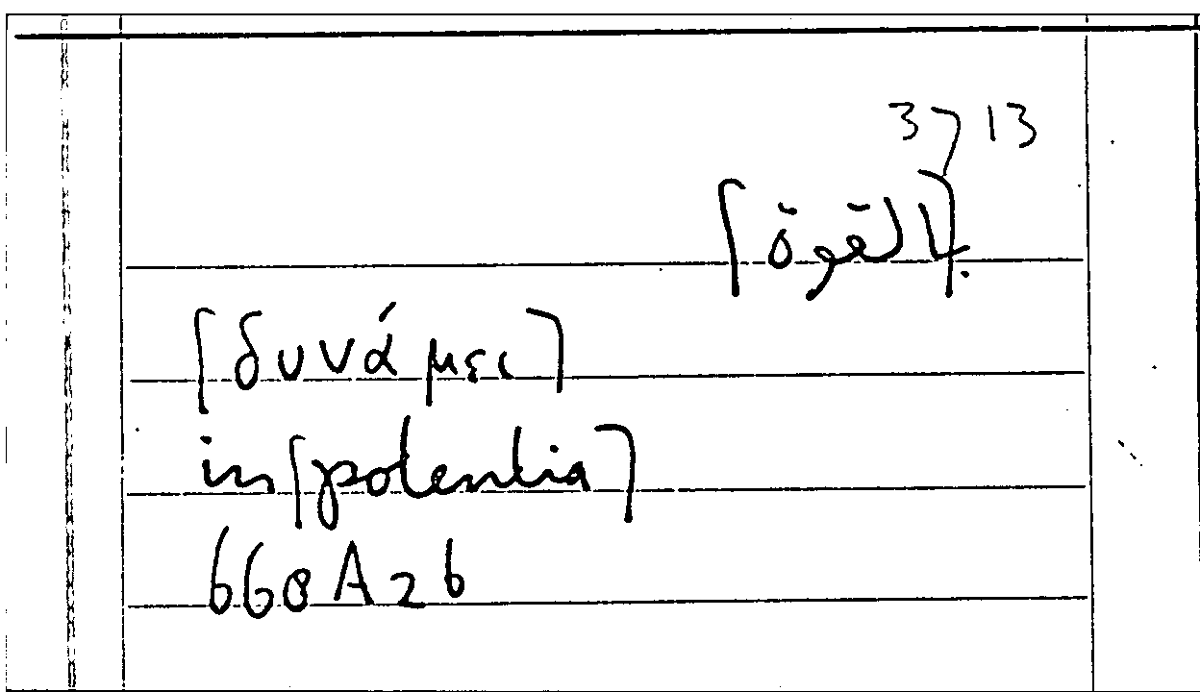 3713
[بالقوة]
[δυνάμει]
in [potentia]
660 A 26